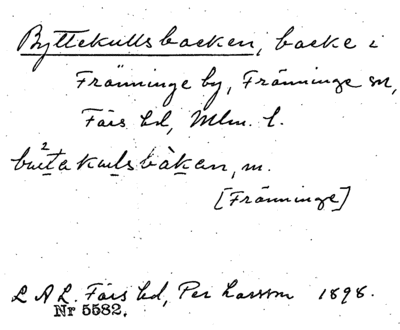 Byttekullsbacken, backe i
Fränninge by, Fränninge sn,
Färs hd, Mlm. l.
m.
[Fränninge]
L A L. Färs hd, Per Larsson 1898.
Nr 5582.